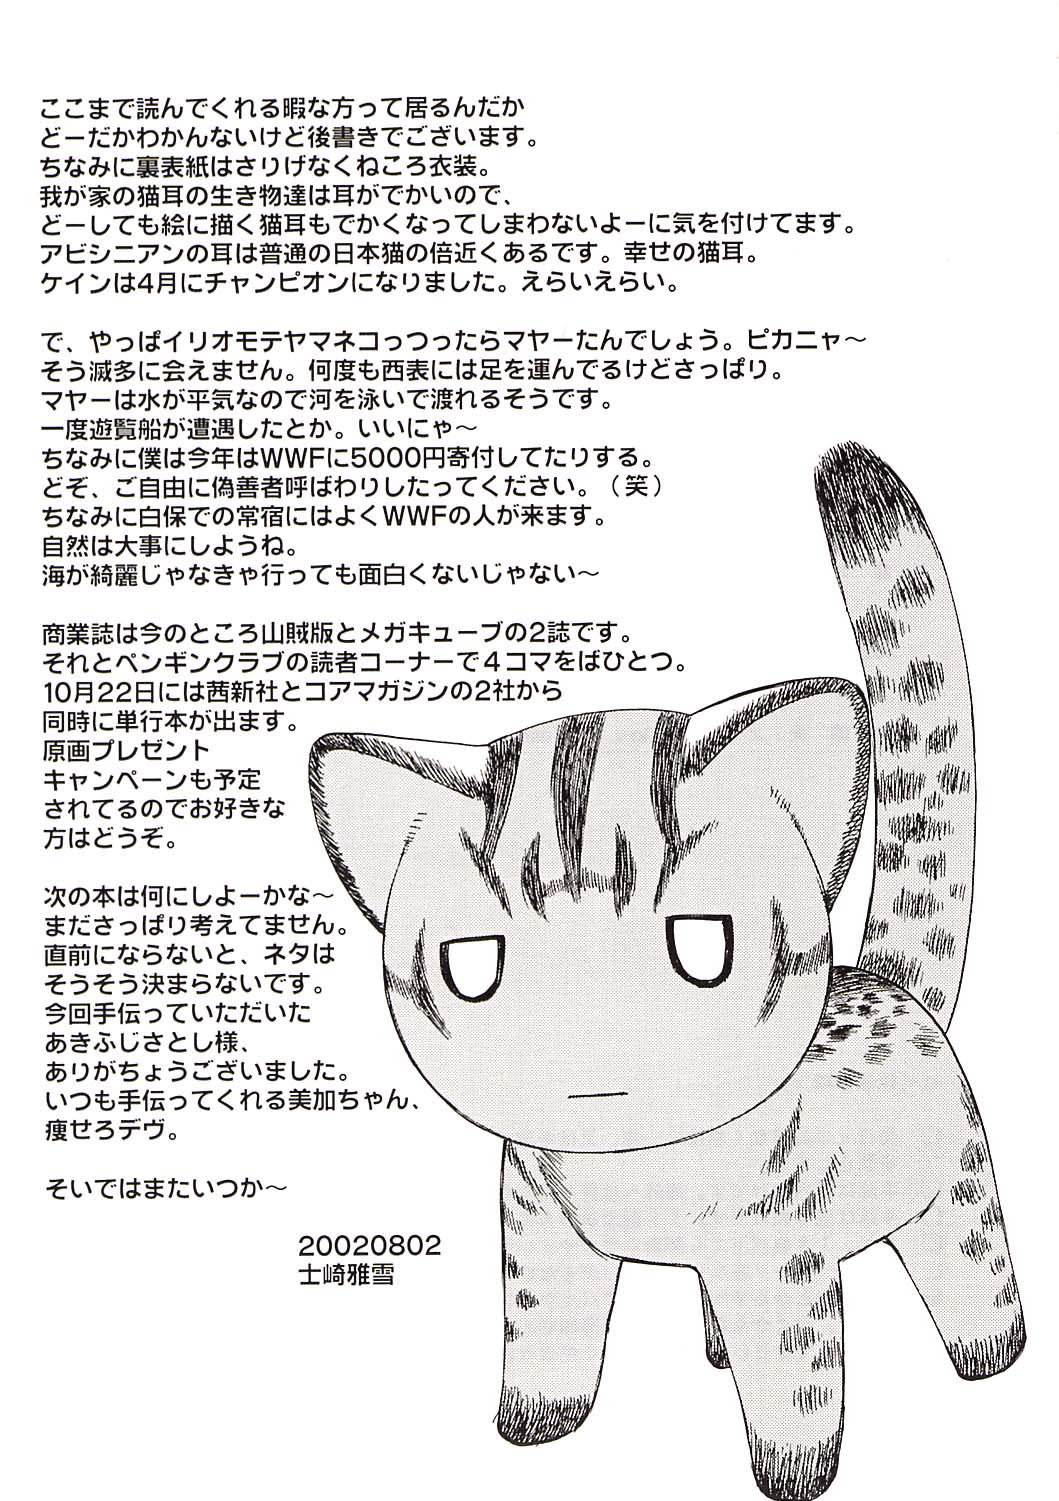 ここまで読んでくれる暇な方って居るんだか
どーだかわかんないけど後書きでございます。
ちなみに裏表紙はさりげなくねころ衣装。
我が家の猫耳の生き物達は耳がでかいので、
どーしても絵に描く猫耳もでかくなってしまわないよーに気を付けてます。
アビシニアンの耳は普通の日本猫の倍近くあるです。幸せの猫耳。
ケインは4月にチャンピオンになりました。えらいえらい。
で、やっぱイリオモテヤマネコっつったらマヤーたんでしょう。ピカニャ～
そう滅多に会えません。何度も西表には足を運んでるけどさっぱり。
マヤーは水が平気なので河を泳いで渡れるそうです。
一度遊覧船が遭遇したとか。いいにゃ～
ちなみに僕は今年はWWFに5000円寄付してたりする。
どぞ、ご自由に偽善者呼ばわりしたってください。（笑）
ちなみに白保での常宿にはよくWWFの人が来ます。
自然は大事にしようね。
海が綺麗じゃなきゃ行っても面白くないじゃない～
商業誌は今のところ山賊版とメガキューブの2誌です。
それとペンギンクラブの読者コーナーで４コマをばひとつ。
10月22日には茜新社とコアマガジンの2社から
同時に単行本が出ます。
原画プレゼント
キャンペーンも予定
されてるのでお好きな
方はどうぞ。
次の本は何にしよーかな～
まださっぱり考えてません。
直前にならないと、ネタは
そうそう決まらないです。
今回手伝っていただいた
あきふじさとし様、
ありがちょうございました。
いつも手伝ってくれる美加ちゃん、
痩せろデヴ。
そいではまたいつか～
20020802
士崎雅雪